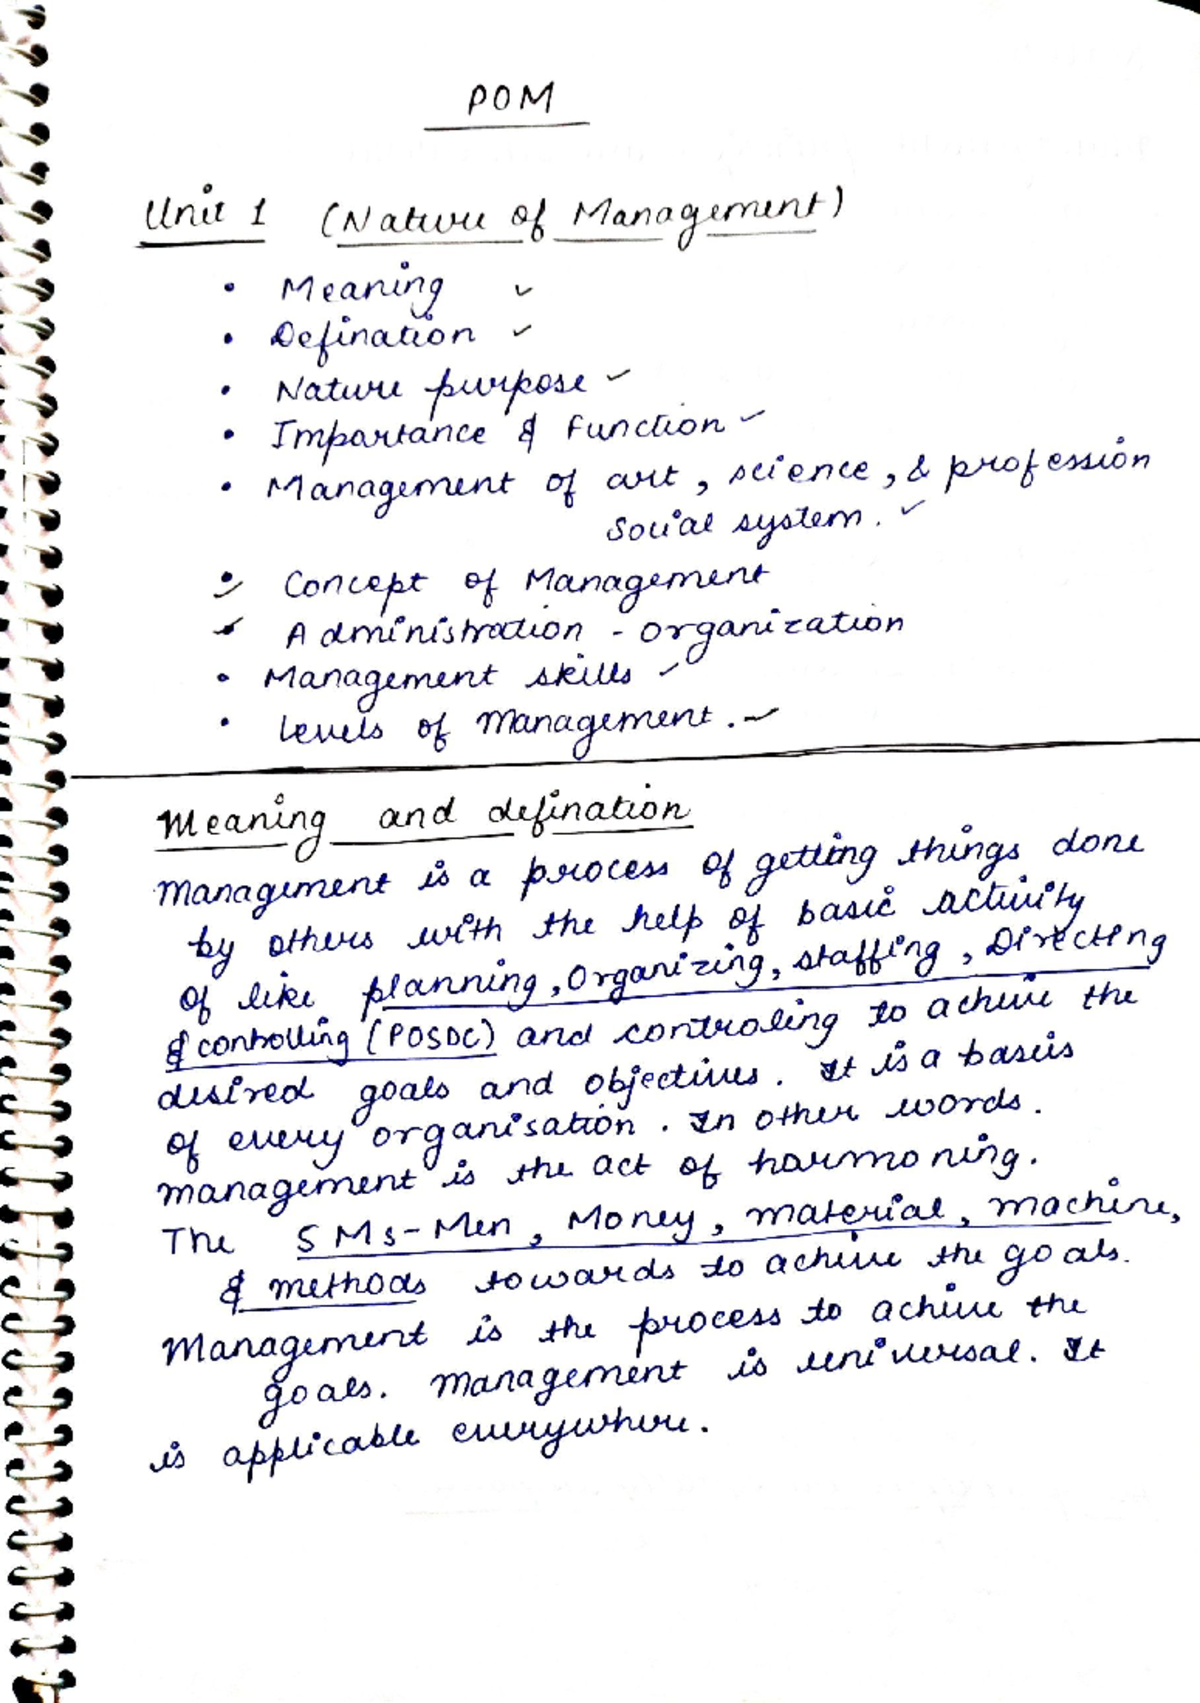 POM
Unit 1 (Nature of Management)
• Meaning ✓
• Defination ✓
• Nature purpose ✓
• Importance & Function ✓
• Management of art, science, & profession
social system. ✓
• Concept of Management
• Administration - organization
• Management skills ✓
• Levels of Management. ✓
Meaning and defination
Management is a process of getting things done
by others with the help of basic activity
of like planning, Organizing, staffing, Directing
& controlling (POSDC) and controling to achive the
desired goals and objectives. It is a baseis
of every organisation. In other words.
management is the act of harmoning.
The 5 Ms-Men, Money, material, machine,
& methods towards to achive the goals.
Management is the process to achive the
goals. Management is universal. It
is applicable everywhere.